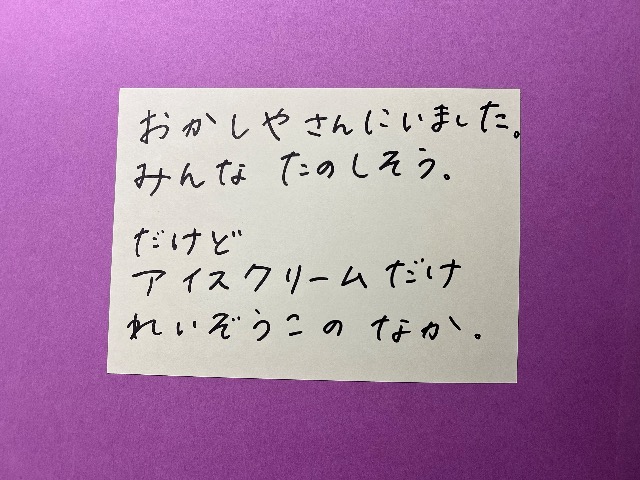 おかしやさんにいました。
みんな たのしそう。
だけど
アイスクリームだけ
れいぞうこの なか。